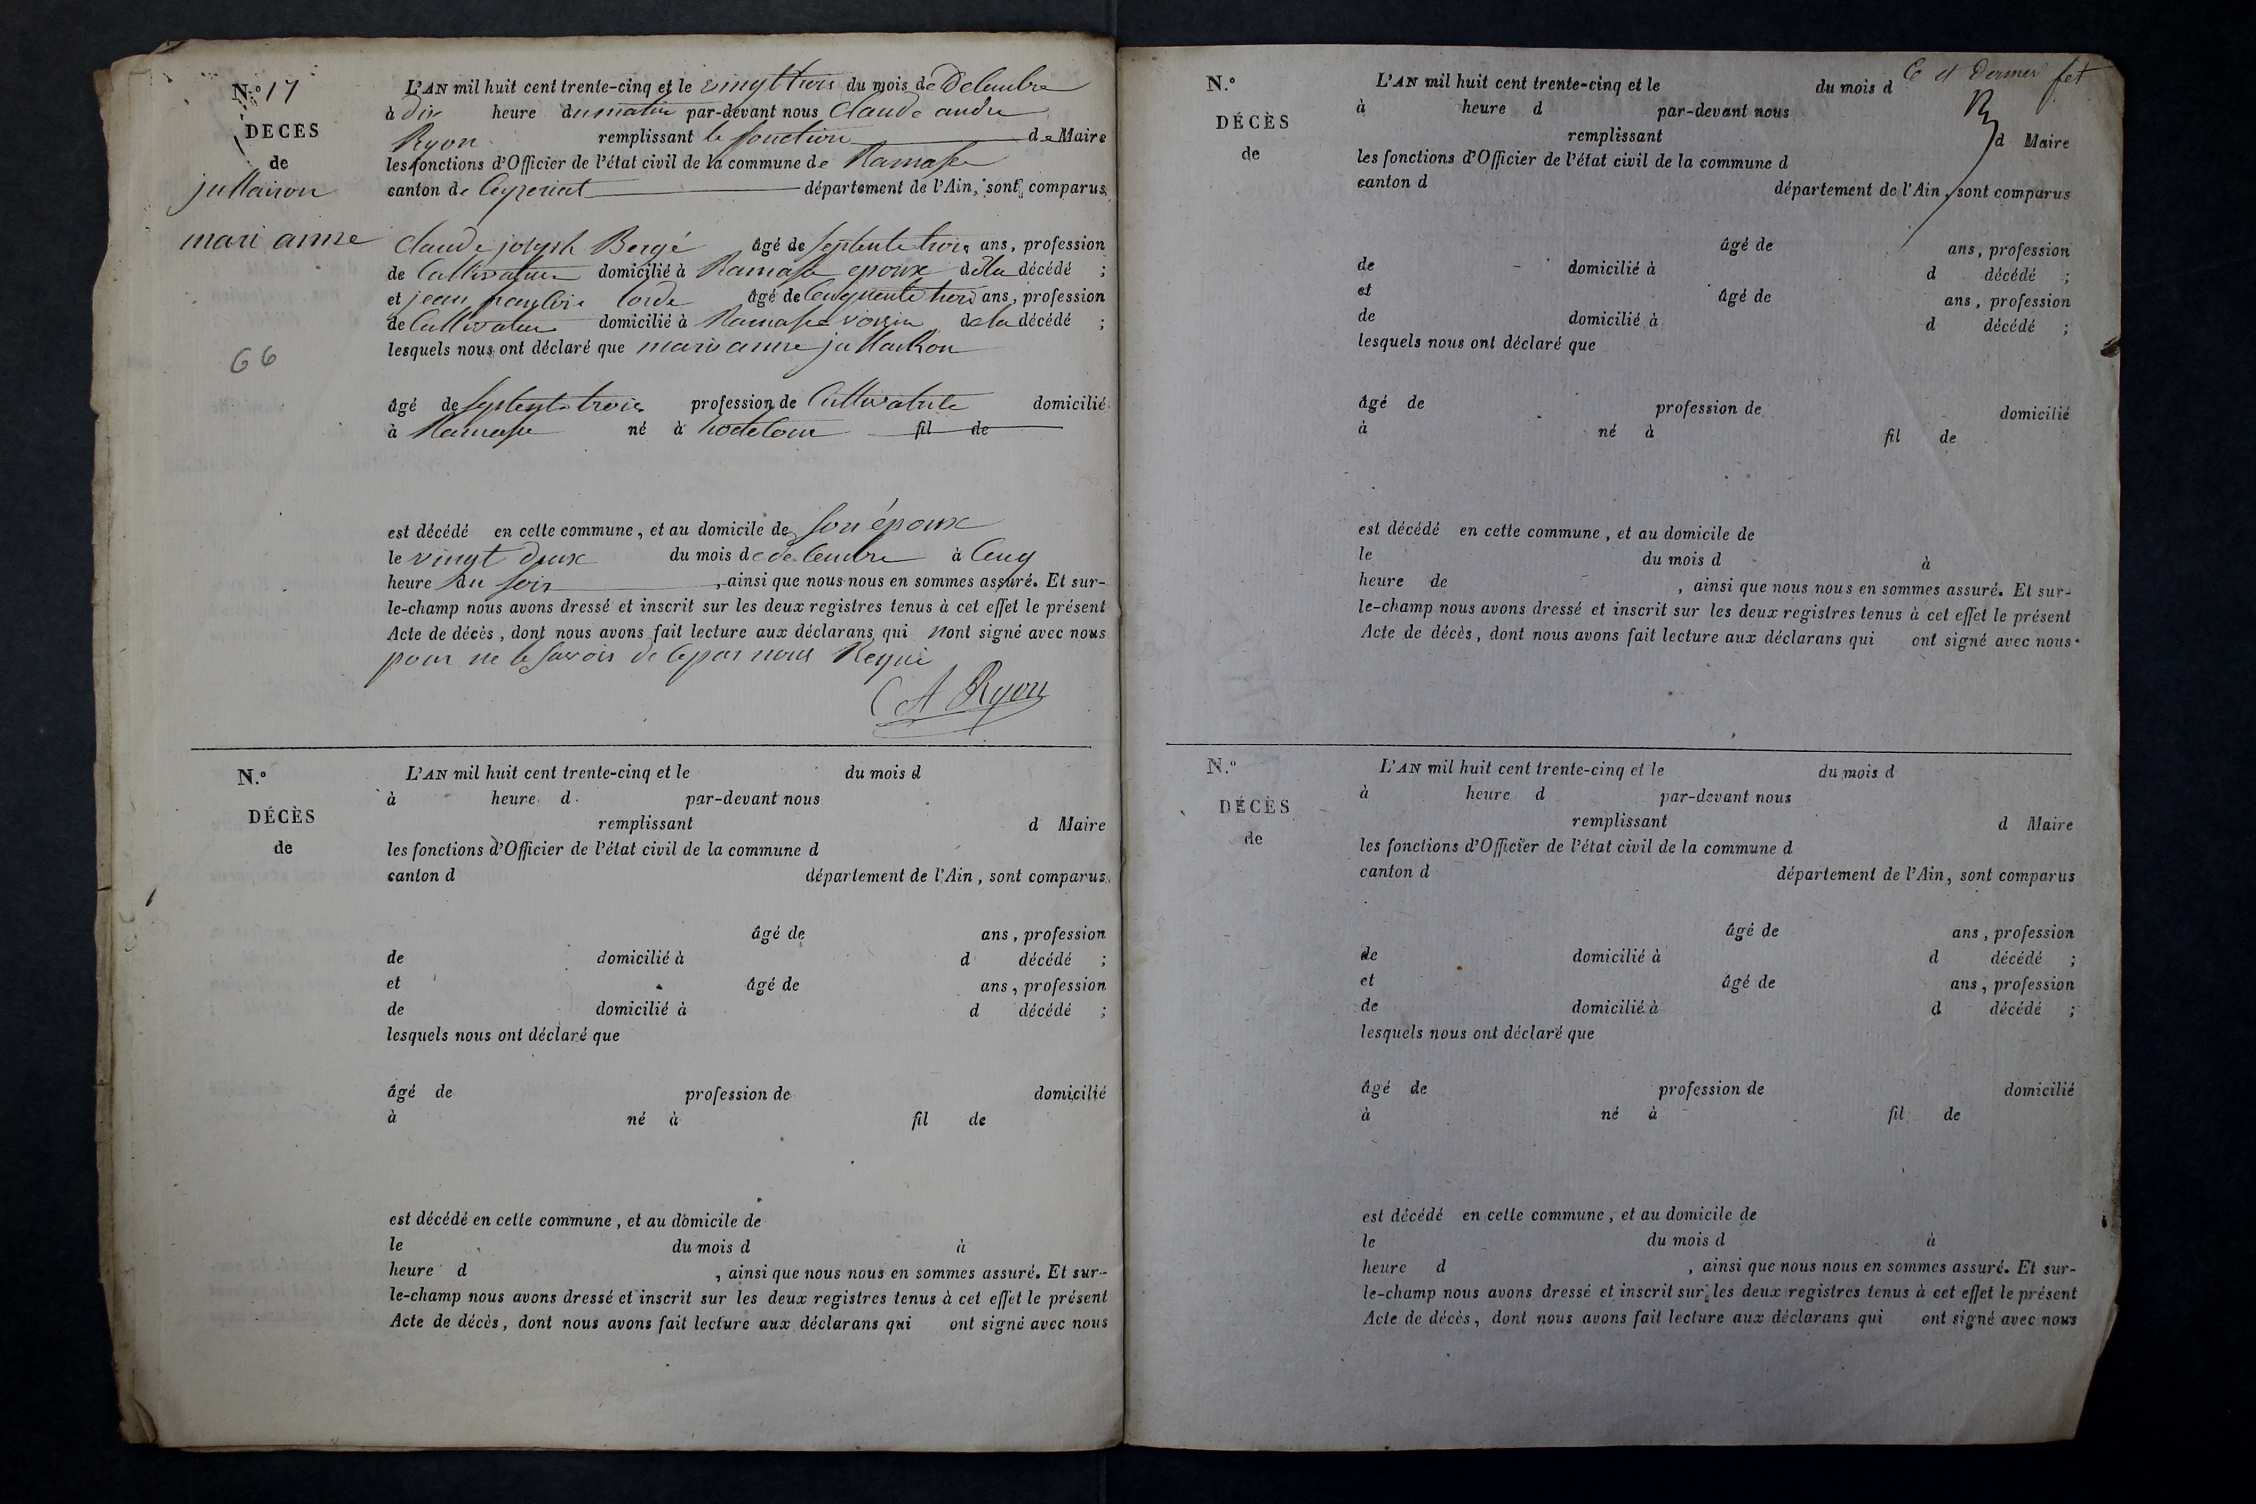 N.º 17
DÉCÈS
de
jullairon
mari anne
66
L'AN mil huit cent trente-cinq et le vingt trois du mois de Decembre
à dix heure du matin par-devant nous Claude andre
Ryon remplissant le fonction de Maire
les fonctions d'Officier de l'état civil de la commune de Ramasse
canton de Ceyzeriat département de l'Ain, sont comparus
Claude joseph Bergé âgé de septente trois ans, profession
de Cultivateur domicilié à Ramasse epoux de la décédé ;
et jean âgé de Cenquente trois ans, profession
de Cultivateur domicilié à Ramasse voisin de la décédé ;
lesquels nous ont déclaré que marie anne
âgé de septente trois profession de Cultivatrice domicilié
à Ramasse né à fil de
est décédé en cette commune, et au domicile de son époux
le vingt deux du mois de decembre à Cenq
heure du soir, ainsi que nous nous en sommes assuré. Et sur-
le-champ nous avons dressé et inscrit sur les deux registres tenus à cet effet le présent
Acte de décès, dont nous avons fait lecture aux déclarans qui nont signé avec nous
pour ne le savoir de ce par nous Requi
C A Ryon
N.º
DÉCÈS
de
L'AN mil huit cent trente-cinq et le du mois d
à heure d par-devant nous
remplissant d Maire
les fonctions d'Officier de l'état civil de la commune d
canton d département de l'Ain, sont comparus
âgé de ans, profession
de domicilié à d décédé ;
et âgé de ans, profession
de domicilié à d décédé ;
lesquels nous ont déclaré que
âgé de profession de domicilié
à né à fil de
est décédé en cette commune, et au domicile de
le du mois d à
heure d , ainsi que nous nous en sommes assuré. Et sur-
le-champ nous avons dressé et inscrit sur les deux registres tenus à cet effet le présent
Acte de décès, dont nous avons fait lecture aux déclarans qui ont signé avec nous
et dernier
N.º
DÉCÈS
de
L'AN mil huit cent trente-cinq et le du mois d
à heure d par-devant nous
remplissant d Maire
les fonctions d'Officier de l'état civil de la commune d
canton d département de l'Ain, sont comparus
âgé de ans, profession
de domicilié à d décédé ;
et âgé de ans, profession
de domicilié à d décédé ;
lesquels nous ont déclaré que
âgé de profession de domicilié
à né à fil de
est décédé en cette commune, et au domicile de
le du mois d à
heure de , ainsi que nous nous en sommes assuré. Et sur-
le-champ nous avons dressé et inscrit sur les deux registres tenus à cet effet le présent
Acte de décès, dont nous avons fait lecture aux déclarans qui ont signé avec nous.
N.º
DÉCÈS
de
L'AN mil huit cent trente-cinq et le du mois d
à heure d par-devant nous
remplissant d Maire
les fonctions d'Officier de l'état civil de la commune d
canton d département de l'Ain, sont comparus
âgé de ans, profession
de domicilié à d décédé ;
et âgé de ans, profession
de domicilié à d décédé ;
lesquels nous ont déclaré que
âgé de profession de domicilié
à né à fil de
est décédé en cette commune, et au domicile de
le du mois d à
heure d , ainsi que nous nous en sommes assuré. Et sur-
le-champ nous avons dressé et inscrit sur les deux registres tenus à cet effet le présent
Acte de décès, dont nous avons fait lecture aux déclarans qui ont signé avec nous